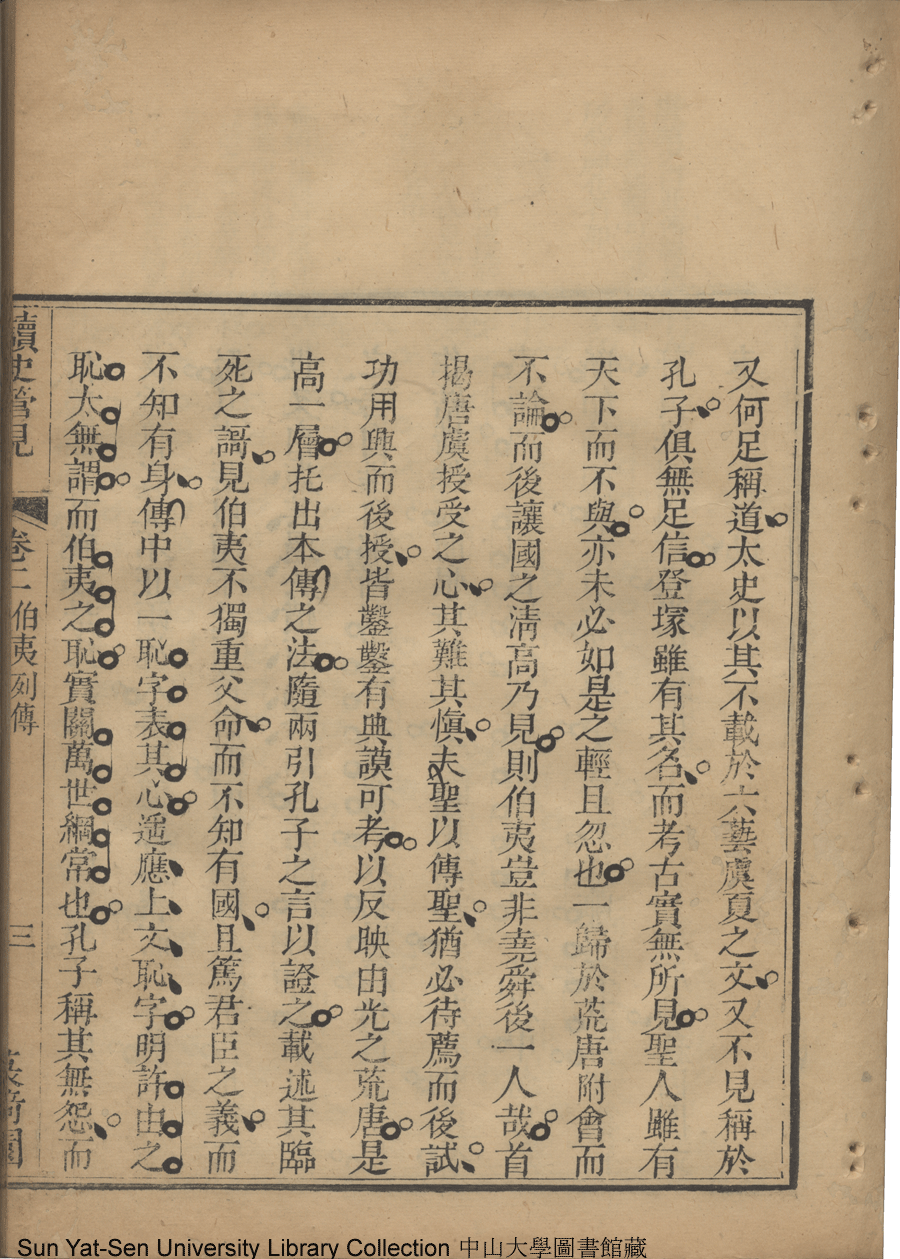 又何足稱道太史以其不載於六藝虞夏之文又不見稱於
孔子俱無足信登塚雖有其名而考古實無所見聖人雖有
天下而不與亦未必如是之輕且忽也一歸於荒唐附會而
不論而後讓國之清高乃見則伯夷豈非堯舜後一人哉首
揭唐虞授受之心其難其慎夫聖以傳聖猶必待薦而後試
功用興而後授皆鑿鑿有典謨可考以反映由光之荒唐是
高一層托出本傳之法隨兩引孔子之言以證之載述其臨
死之謌見伯夷不獨重父命而不知有國且篤君臣之義而
不知有身傳中以一恥字表其心遥應上文恥字明許由之
恥太無謂而伯夷之恥實關萬世綱常也孔子稱其無怨而
讀史管見 卷二 伯夷列傳 三
Sun Yat-Sen University Library Collection 中山大學圖書館藏